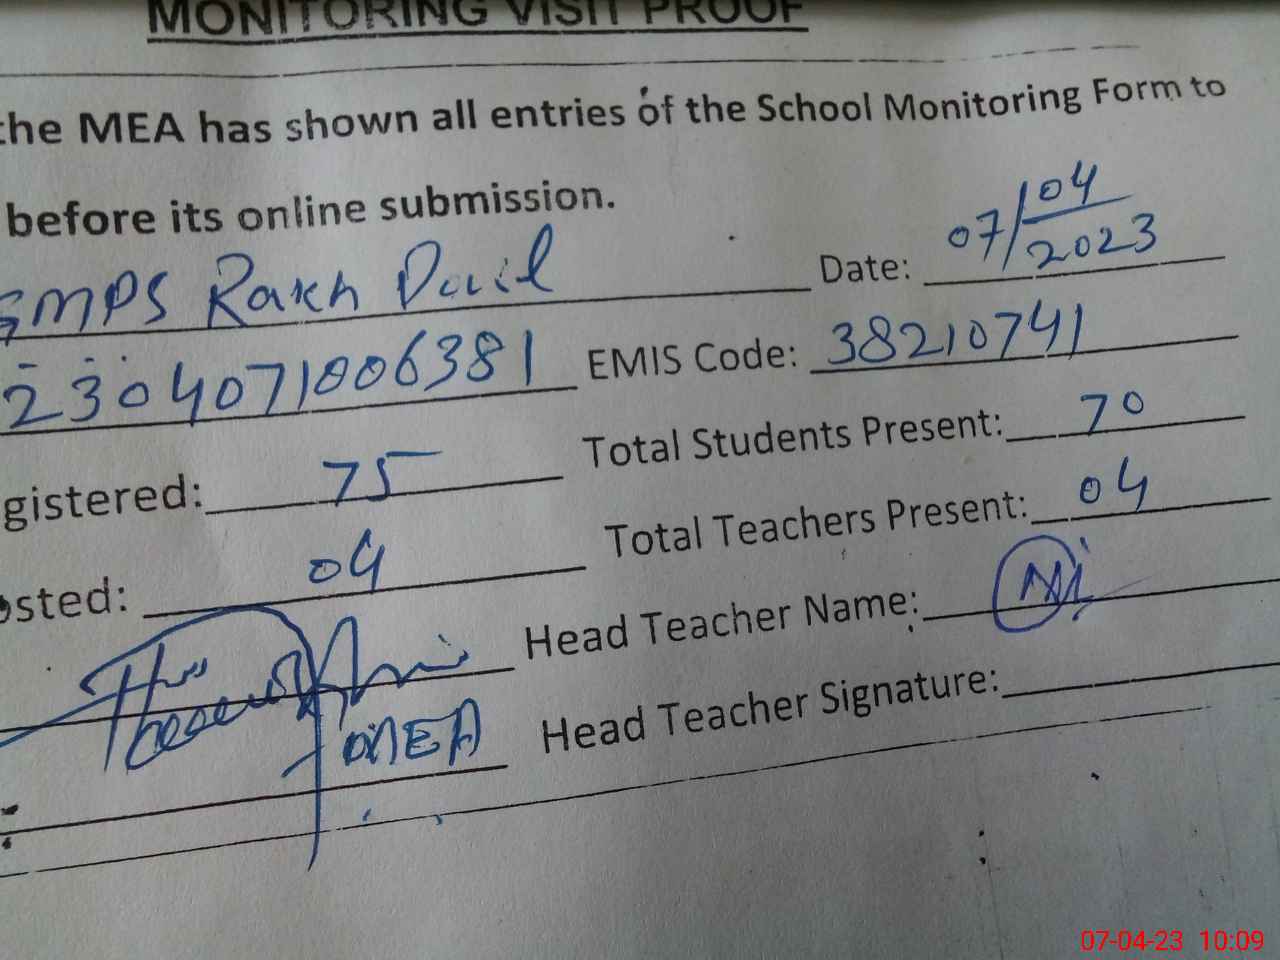 MONITORING VISIT PROOF
the MEA has shown all entries of the School Monitoring Form to
before its online submission.
GMPS Rakh Date: 07/04/2023
2304071006381 EMIS Code: 38210741
gistered: 75 Total Students Present: 70
osted: 04 Total Teachers Present: 04
Head Teacher Name: Nil
MEA Head Teacher Signature:
07-04-23 10:09